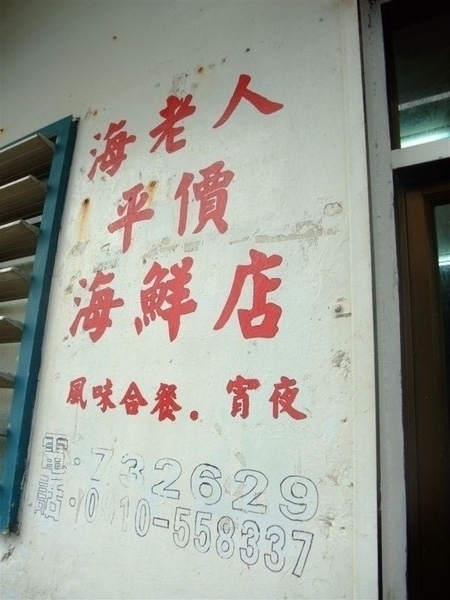 海老人
平價
海鮮店
風味合餐.宵夜
電:732629
話:010-558337